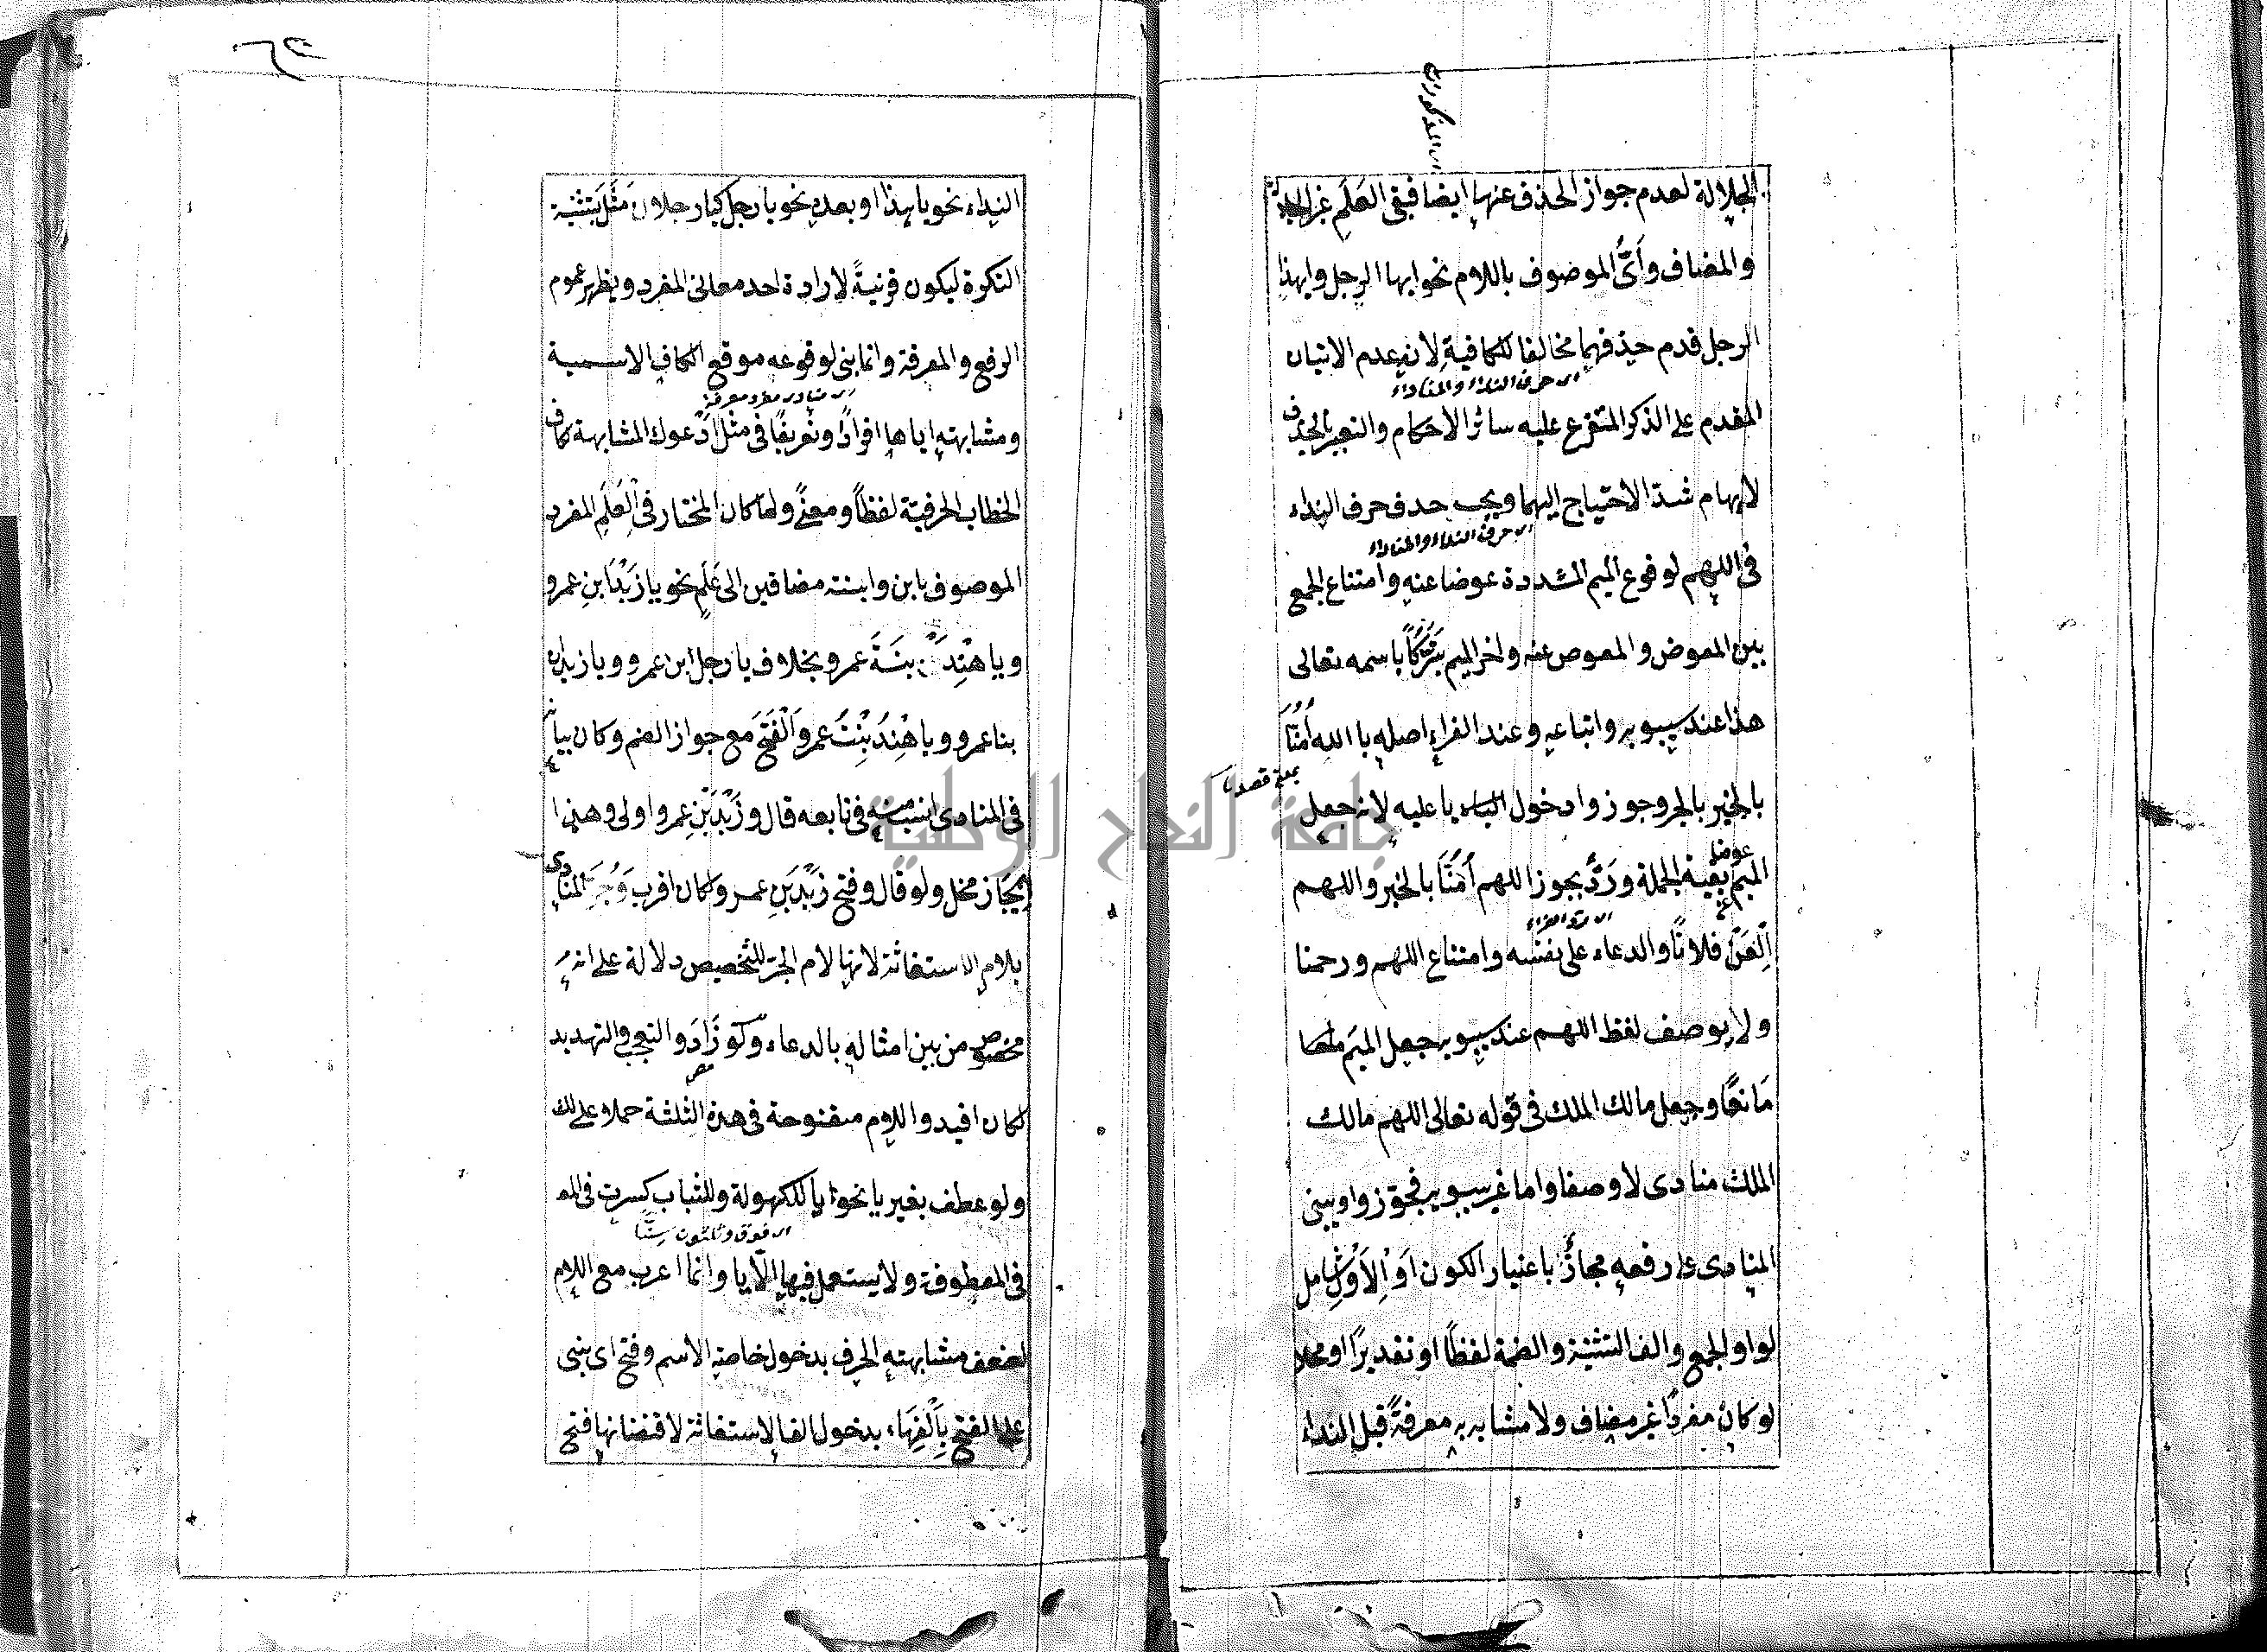 الجلالة لعدم جواز الحذف عنها ايضا فبقى العلم غير
والمضاف وأىُّ الموضوف باللام نحو ايها الرجل وايهذا
الرجل قدم حذفهما مخالفا للكافية لانه عدم الاتيان
اى حرف النداء والمناداء
المقدم على الذكر المتفرع عليه سائر الاحكام والتعبير بالحذف
لايهام شدة الاحتياج اليهما ويجب حذف حرف النداء
اى حرف النداء والمناداء
فى اللهم لوقوع الميم المشددة عوضا عنه وامتناع الجمع
بين المعوض والمعوض عنه واخر الميم تبركاً باسمه تعالى
هذا عند سيبويه واتباعه وعند الفراء اصله يا الله اُمَّنَا
بمعنى قصدنا
بالخير بالجر وجوزوا دخول يا عليه لانه جعل
عوضا
الميم بقية الجملة ورَدَّ بجواز اللهم اُمَّنَا بالخير واللهم
اِلْعَنْ فلاناً والدعاء على نفسه وامتناع اللهم ورحمنا
ولا يوصف لفظ اللهم عند سيبويه جعل الميم
مَانعًا وجعل مالك الملك فى قوله تعالى اللهم مالك
الملك منادى لا وصفا واما غير سيبويه فجوزوا ويبنى
المنادى على رفعه مجازٌ باعتبار الكون اَوْ الاَوْلِ شامل
لواو الجمع والف التثنية والضمة لفظًا او تقديرًا او محلا
لو كان مفردًا غير مضاف ولا مشابه به معرفةً قبل النداء
النداء نحو يا هذا او بعده نحو يا رجل كيا رجلان مثّل بتثنية
النكرة ليكون قرينةً لارادة احد معانى المفرد ويظهر عموم
الرفع والمعرفة وانما بنى لوقوعه موقع الكاف الاسمية
اى منادى مفرد معرفة
ومشابهته اياها افرادًا وتعريفًا فى مثل اَدْعوك المشابهة كاف
الخطاب الحرفية لفظاً ومعنًى ولما كان المختار فى العَلَمِ المفرد
الموصوف بابن وابنة مضافين الى عَلَمٍ نحو يا زَيْدَ ابنِ عمرو
ويا هِنْدَ بنَةَ عمرو بخلاف يا رجل ابن عمرو ويا زيدان
بنا عمرو ويا هِنْدُ بِنْتُ عمرو اَلْفَتْحَ مع جواز الضم وكان بيانه
فى المنادى انسب منه فى تابعه قال وزَيْدَ بْنِ عمرو اولى وهذا
اِيجَاز مخل ولو قال وفتح زَيْدَ بْنِ عمرو لكان اقرب وَجُرَّ المنادى
بلام الاستغاثة لانها لام الجر للتخصيص دلالة على انه
مخصوص من بين امثاله بالدعاء ولو زَادَ والتعجب والتهديد
لكان افيد واللام مفتوحة فى هذه الثلثة حملا على لك
ولو عطف بغير يا نحو يا للكهولة وللشباب كسرت
اى فوق وثلثون سنًّا
فى المعطوفة ولا يستعمل فيها اِلَّا يا وانما اعرب مع اللام
لضعف مشابهته الحرف بدخول خاصة الاسم وفتح اى بنى
على الفتح بِاَلْفِهَاء بدخول الف الاستغاثة لاقتضائها فتح